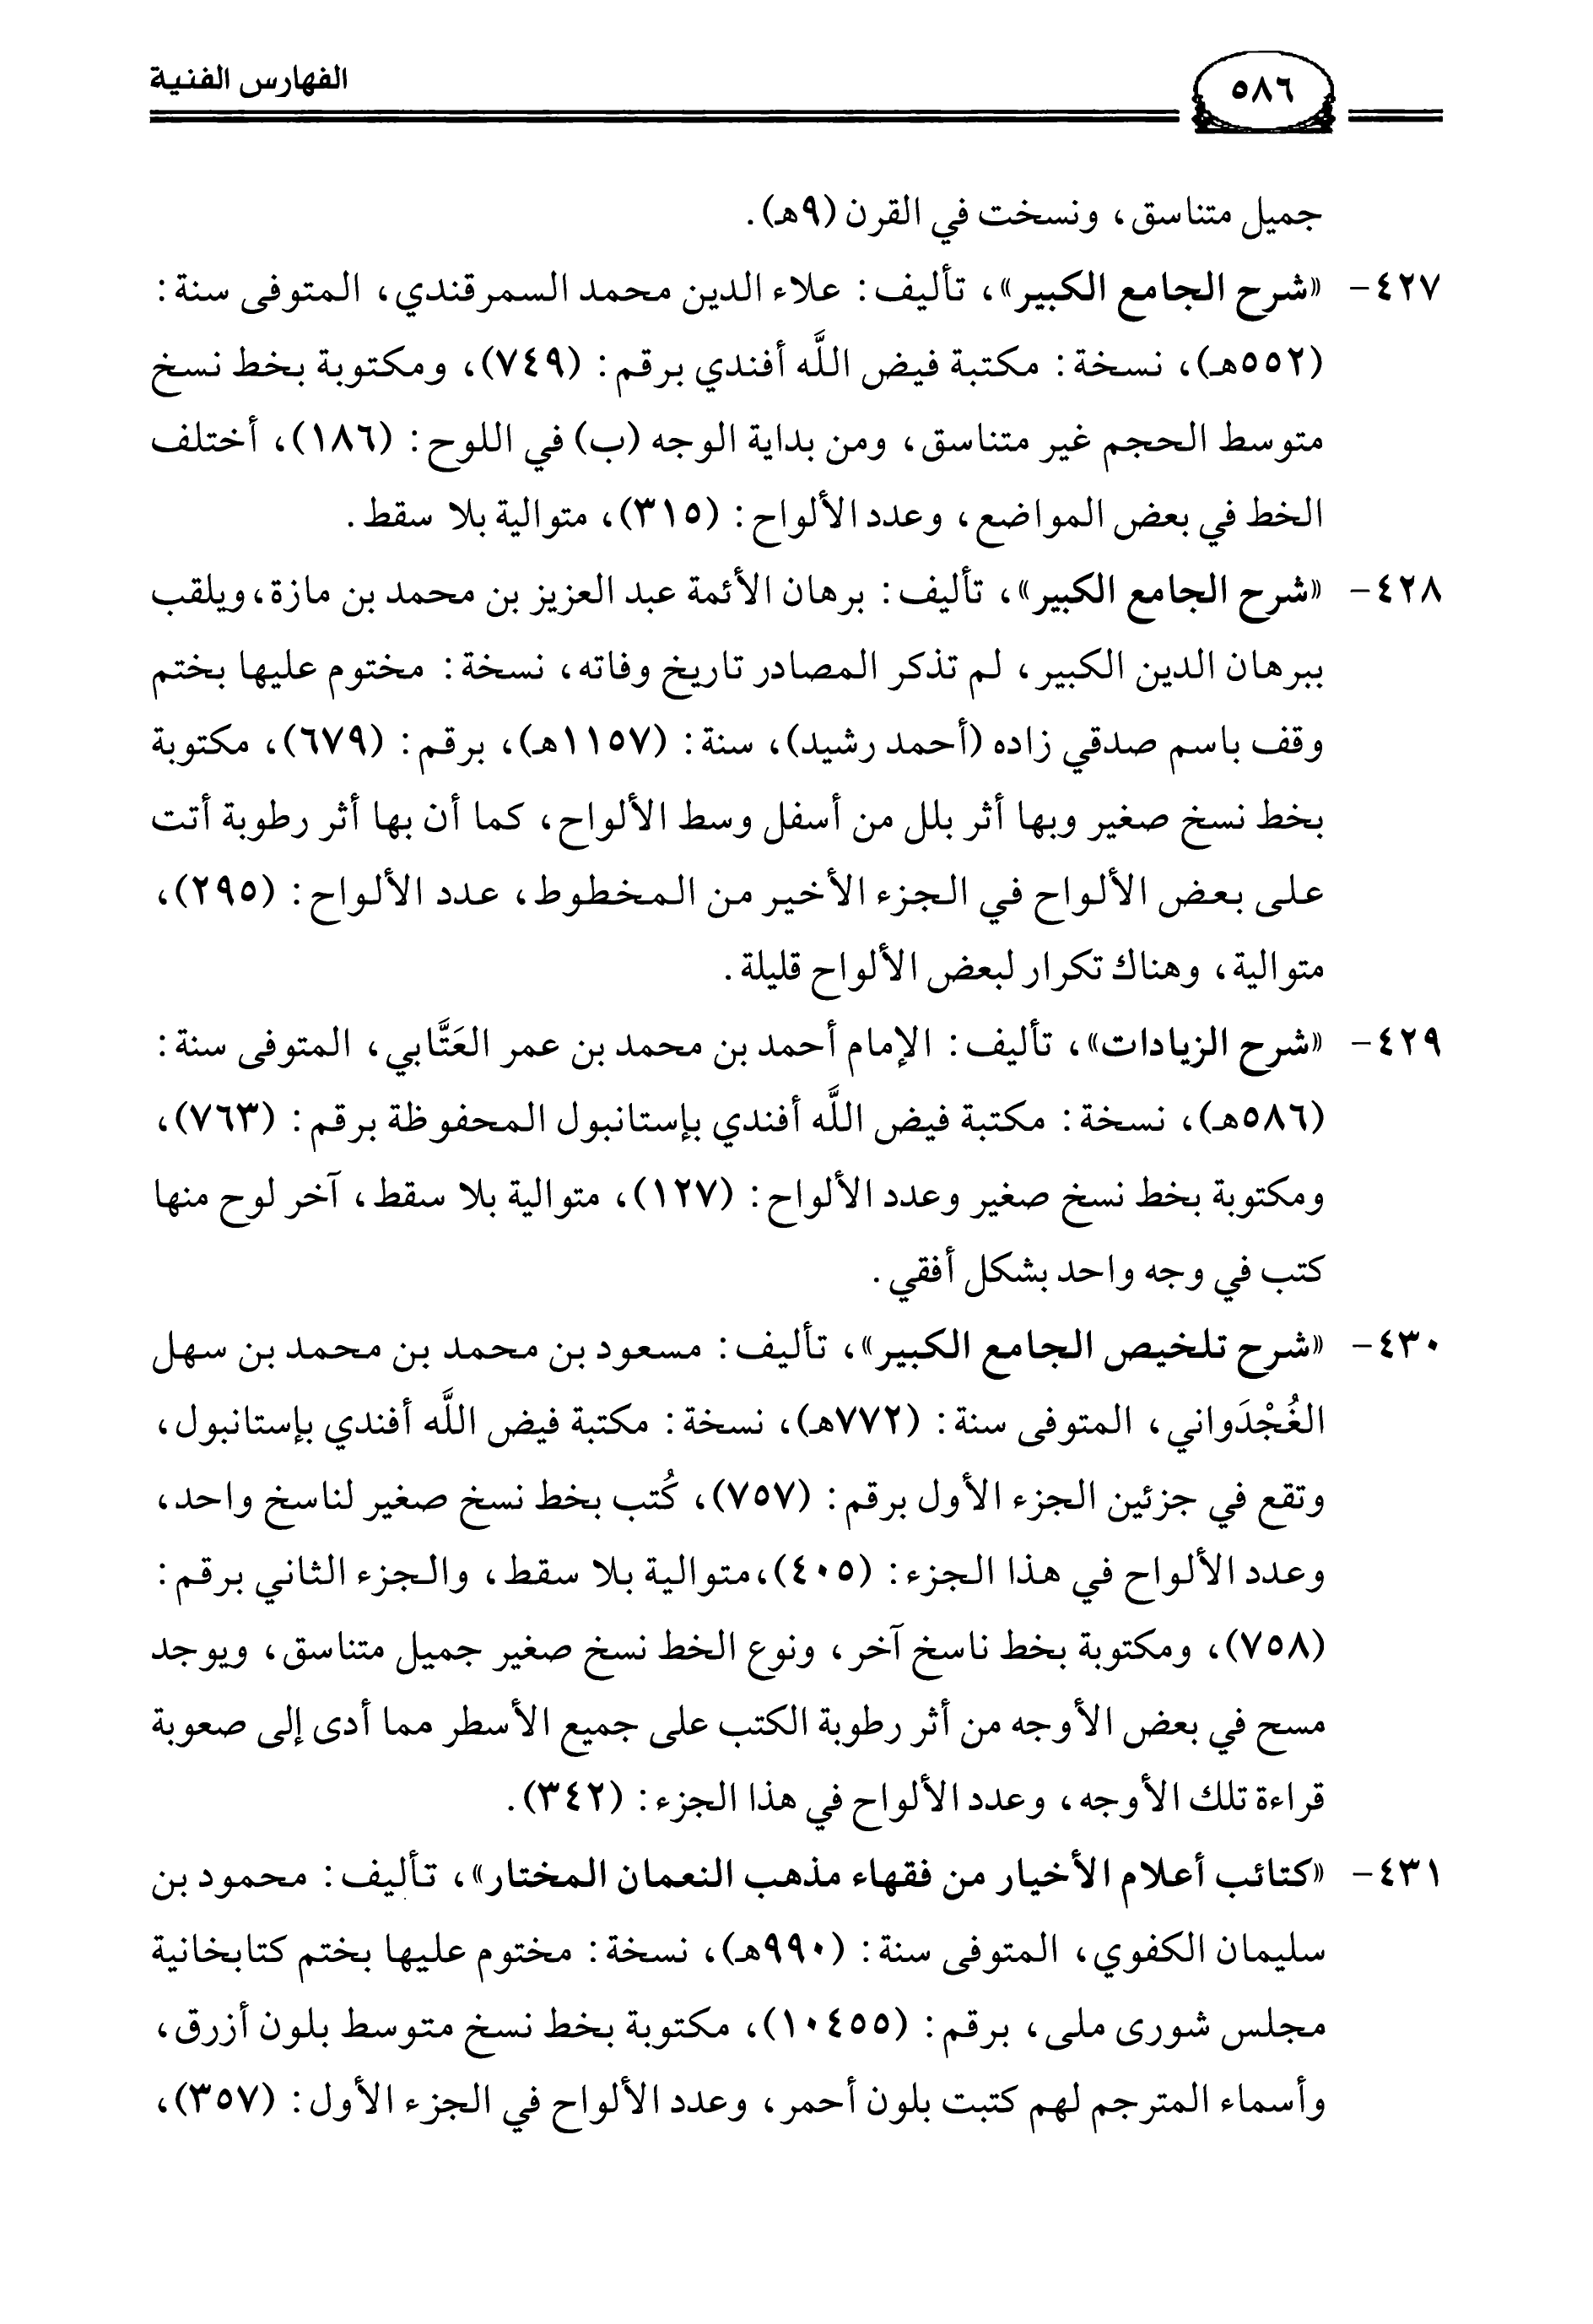 الفهارس الفنية
٥٨٦
جميل متناسق، ونسخت في القرن (٩هـ).
٤٢٧- «شرح الجامع الكبير»، تأليف: علاء الدين محمد السمرقندي، المتوفى سنة:
(٥٥٢هـ)، نسخة: مكتبة فيض اللَّه أفندي برقم: (٧٤٩)، ومكتوبة بخط نسخ
متوسط الحجم غير متناسق، ومن بداية الوجه (ب) في اللوح: (١٨٦)، أختلف
الخط في بعض المواضع، وعدد الألواح: (٣١٥)، متوالية بلا سقط.
٤٢٨- «شرح الجامع الكبير»، تأليف: برهان الأئمة عبد العزيز بن محمد بن مازة، ويلقب
ببرهان الدين الكبير، لم تذكر المصادر تاريخ وفاته، نسخة: مختوم عليها بختم
وقف باسم صدقي زاده (أحمد رشيد)، سنة: (١١٥٧هـ)، برقم: (٦٧٩)، مكتوبة
بخط نسخ صغير وبها أثر بلل من أسفل وسط الألواح، كما أن بها أثر رطوبة أتت
على بعض الألواح في الجزء الأخير من المخطوط، عدد الألواح: (٢٩٥)،
متوالية، وهناك تكرار لبعض الألواح قليلة.
٤٢٩- «شرح الزيادات»، تأليف: الإمام أحمد بن محمد بن عمر العَتَّابي، المتوفى سنة:
(٥٨٦هـ)، نسخة: مكتبة فيض اللَّه أفندي بإستانبول المحفوظة برقم: (٧٦٣)،
ومكتوبة بخط نسخ صغير وعدد الألواح: (١٢٧)، متوالية بلا سقط، آخر لوح منها
كتب في وجه واحد بشكل أفقي.
٤٣٠- «شرح تلخيص الجامع الكبير»، تأليف: مسعود بن محمد بن محمد بن سهل
الغُجْدَواني، المتوفى سنة: (٧٧٢هـ)، نسخة: مكتبة فيض اللَّه أفندي بإستانبول،
وتقع في جزئين الجزء الأول برقم: (٧٥٧)، كُتب بخط نسخ صغير لناسخ واحد،
وعدد الألواح في هذا الجزء: (٤٠٥)، متوالية بلا سقط، والجزء الثاني برقم:
(٧٥٨)، ومكتوبة بخط ناسخ آخر، ونوع الخط نسخ صغير جميل متناسق، ويوجد
مسح في بعض الأوجه من أثر رطوبة الكتب على جميع الأسطر مما أدى إلى صعوبة
قراءة تلك الأوجه، وعدد الألواح في هذا الجزء: (٣٤٢).
٤٣١- «كتائب أعلام الأخيار من فقهاء مذهب النعمان المختار»، تأليف: محمود بن
سليمان الكفوي، المتوفى سنة: (٩٩٠هـ)، نسخة: مختوم عليها بختم كتابخانية
مجلس شورى ملى، برقم: (١٠٤٥٥)، مكتوبة بخط نسخ متوسط بلون أزرق،
وأسماء المترجم لهم كتبت بلون أحمر، وعدد الألواح في الجزء الأول: (٣٥٧)،